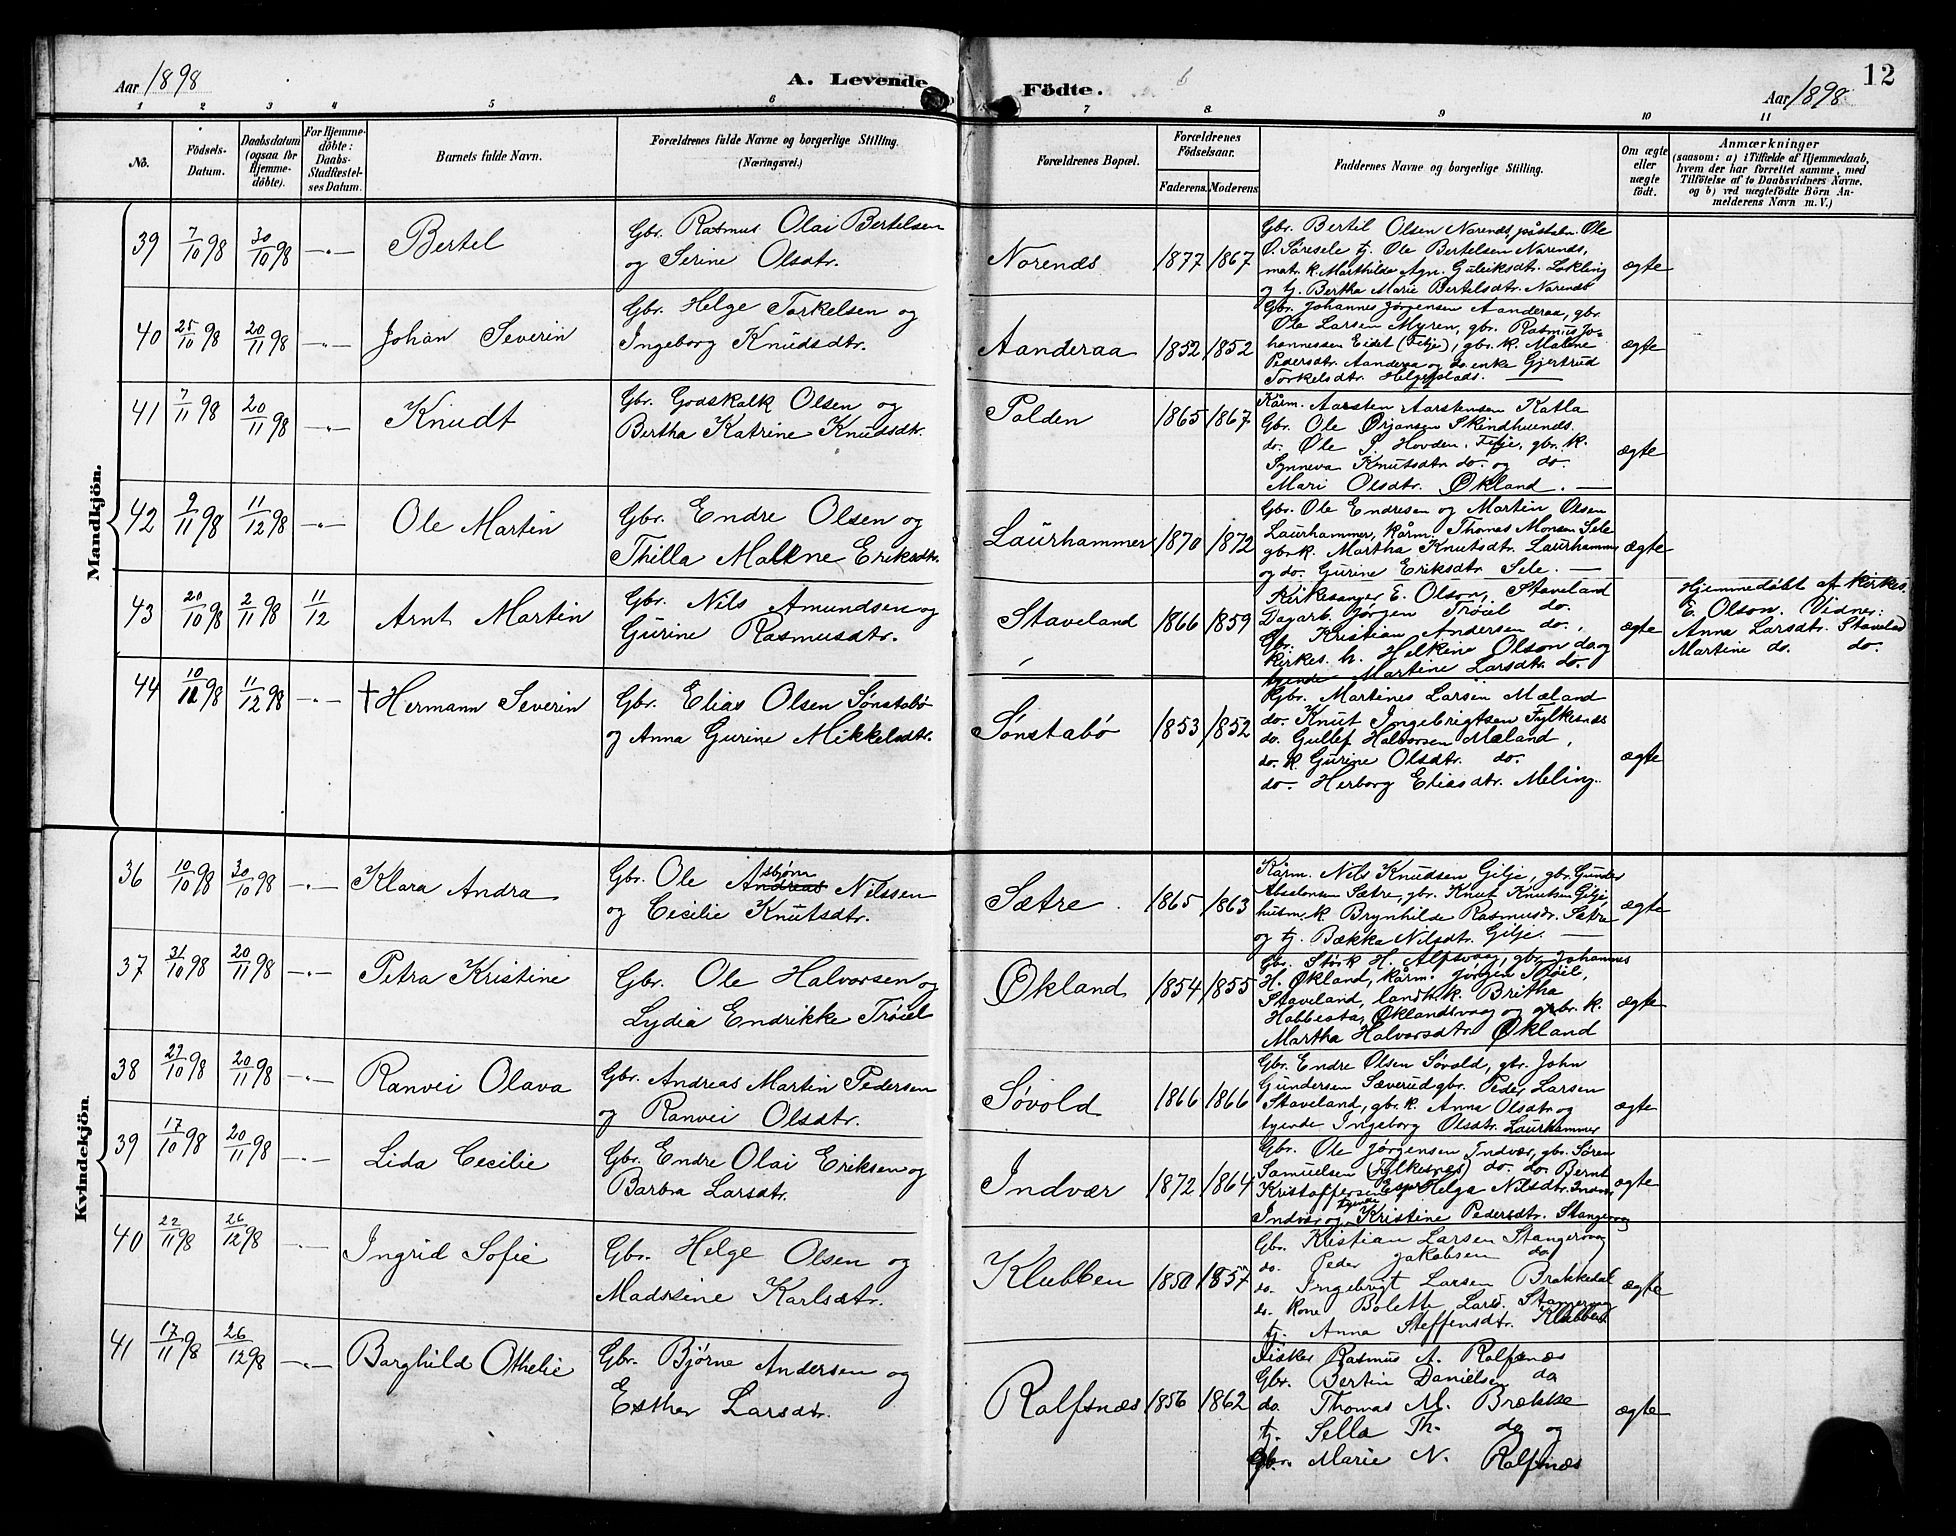 Aar 1898 A. Levende Födte. Aar 1898 12
1 2 3 4 5 6 7 8 9 10 11
No. Födsels-Datum. Daabsdatum (ogsaa for Hjemmedöbte). For Hjemmedöbte: Daabs-Stadfæstelses Datum. Barnets fulde Navn. Forældrenes fulde Navne og borgerlige Stilling. (Næringsvei.) Forældrenes Bopæl. Forældrenes Födselsaar. Faderens. Moderens. Faddernes Navne og borgerlige Stilling. Om ægte eller uægte födt. Anmærkninger (saasom: a) i Tilfælde af Hjemmedaab, hvem der har forrettet samme, med Tilföielse af to Daabsvidners Navne, og b) ved uægtefödte Börn Anmelderens Navn m. V.)
Mandkjön.
39 7/10 98 30/10 98 -"- Bertel
Gbr. Rasmus Olai Bertelsen
og Serine Olsdtr.
Norends 1877 1867
Gbr. Bertil Olsen Norends, Ole
O. Søresele tj. Ole Bertelsen Norends,
og tj. Bertha Marie Bertelsdtr. Norends
ægte
40 25/10 98 20/11 98 -"- Johan Severin
Gbr. Helge Torkelsen og
Ingeborg Knudsdtr.
Aanderaa 1852 1852
Gbr. Johannes Jørgensen Aanderaa, gbr.
Ole Larsen Myren, gbr. Rasmus Jo-
hannessen Eidet (Fitje), gbr. k. Malene
Pedersdtr. Aanderaa og do. enke Gjertrud
Torkelsdtr. Helgeplads.
ægte
41 7/11 98 20/11 98 -"- Knudt
Gbr. Godskalk Olsen og
Bertha Katrine Knudsdtr.
Polden 1865 1867
Kårm. Aarsten Aarstensen Katla
Gbr. Ole Ørjansen Skindhuends,
do. Ole P. Hovden, Fitje, gbr. k.
Synneva Knutsdtr do. og do.
Mari Olsdtr. Økland.
ægte
42 9/11 98 11/12 98 -"- Ole Martin
Gbr. Endre Olsen og
Thilla Malene Eriksdtr.
Laurhammer 1870 1872
Gbr. Ole Endresen og Martin Olsen
Laurhammer, kårm. Thomas Monsen Sele
gbr. k. Martha Knutsdtr. Laurhammer
og do. Gurine Eriksdtr Sele.
ægte
43 20/10 98 2/11 98 11/12 Arnt Martin
Gbr. Nils Amundsen og
Gurine Rasmusdtr.
Staveland 1866 1859
Kirkesanger E. Olson, Staveland
Dagarb. Jørgen Trøiel do.
Gbr. Kristian Andersen do.,
Kirkes. h. Helkine Olson do. og
tjende Martine Larsdtr. do.
ægte
Hjemmedöbt af Kirkes.
E. Olson. Vidner:
Anna Larsdtr. Staveland
Martine do. do.
44 10/11 98 11/12 98 -"- † Hermann Severin
Gbr. Elias Olsen Sønstabø
og Anna Gurine Mikkelsdtr.
Sønstabø 1853 1852
Gbr. Martines Larsen Mæland
do. Knut Ingebrigtsen Fylkesnæs
do. Gullef Halvorsen Mæland,
do. k. Gurine Olsdtr. do.
do. Herborg Eliasdtr. Meling.
ægte
Kvindekjön
36 10/10 98 30/10 98 -"- Klara Andra
Gbr. Ole Asbjørn Nilssen
og Cecilie Knutsdtr.
Sætre 1865 1863
Kårm. Nils Knudsen Gilje, gbr. Gunder
Absalonsen Sætre, gbr. Knut Knutsen Gilje,
husm. k. Brynhilde Rasmusdr. Sætre
og tj. Bækka Nilsdtr. Gilje.
ægte
37 31/10 98 20/11 98 -"- Petra Kristine
Gbr. Ole Halvorsen og
Lydia Endrikke Trøiel
Økland 1854 1855
Gbr. Størk H. Alfsvaag, gbr. Johannes
H. Økland, kårm. Jørgen Trøiel,
Staveland, landh. k. Britha
Habbestad, Øklandsvaag og gbr. k.
Martha Halvorsdtr. Økland
ægte
38 27/10 98 20/11 98 -"- Ranvei Olava
Gbr. Andreas Martin Pedersen
og Ranvei Olsdtr.
Søvold 1866 1866
Gbr. Endre Olsen Søvold, gbr. John
Gundersen Sæverud gbr. Peder Larsen
Staveland, gbr. k. Anna Olsdtr og
tjende Ingeborg Olsdtr. Laurhammer
ægte
39 17/10 98 20/11 98 -"- Lida Cecilie
Gbr. Endre Olai Eriksen og
Barbra Larsdtr.
Indvær 1872 1864
Gbr. Ole Jørgensen Indvær, gbr. Søren
Samuelsen (Fylkesnes) do. do. Bernt
Kristoffersen Helga Nilsdtr.
Indvær og tjende Kristine Pedersdtr. Stangervaag
ægte
40 22/11 98 26/12 98 -"- Ingrid Sofie
Gbr. Helge Olsen og
Madssine Karlsdtr.
Klubben 1850 1857
Gbr. Kristian Larsen Stangervaag
do. Peder Jakobsen do
do. Ingebrigt Larsen Brakkedal
do. kone Bolette Larsd. Stangervaag
tj. Anna Steffensdtr. Klubben
ægte
41 17/11 98 26/12 98 -"- Borghild Othelie
Gbr. Bjørne Andersen og
Esther Larsdtr.
Rolfsnæs 1856 1862
Fisker Rasmus A. Rolfsnæs
Gbr. Bertin Danielsen do
do Thomas M. Brække
tj. Sella Th. do og
Gbr. Marie N. Rolfsnæs
ægte